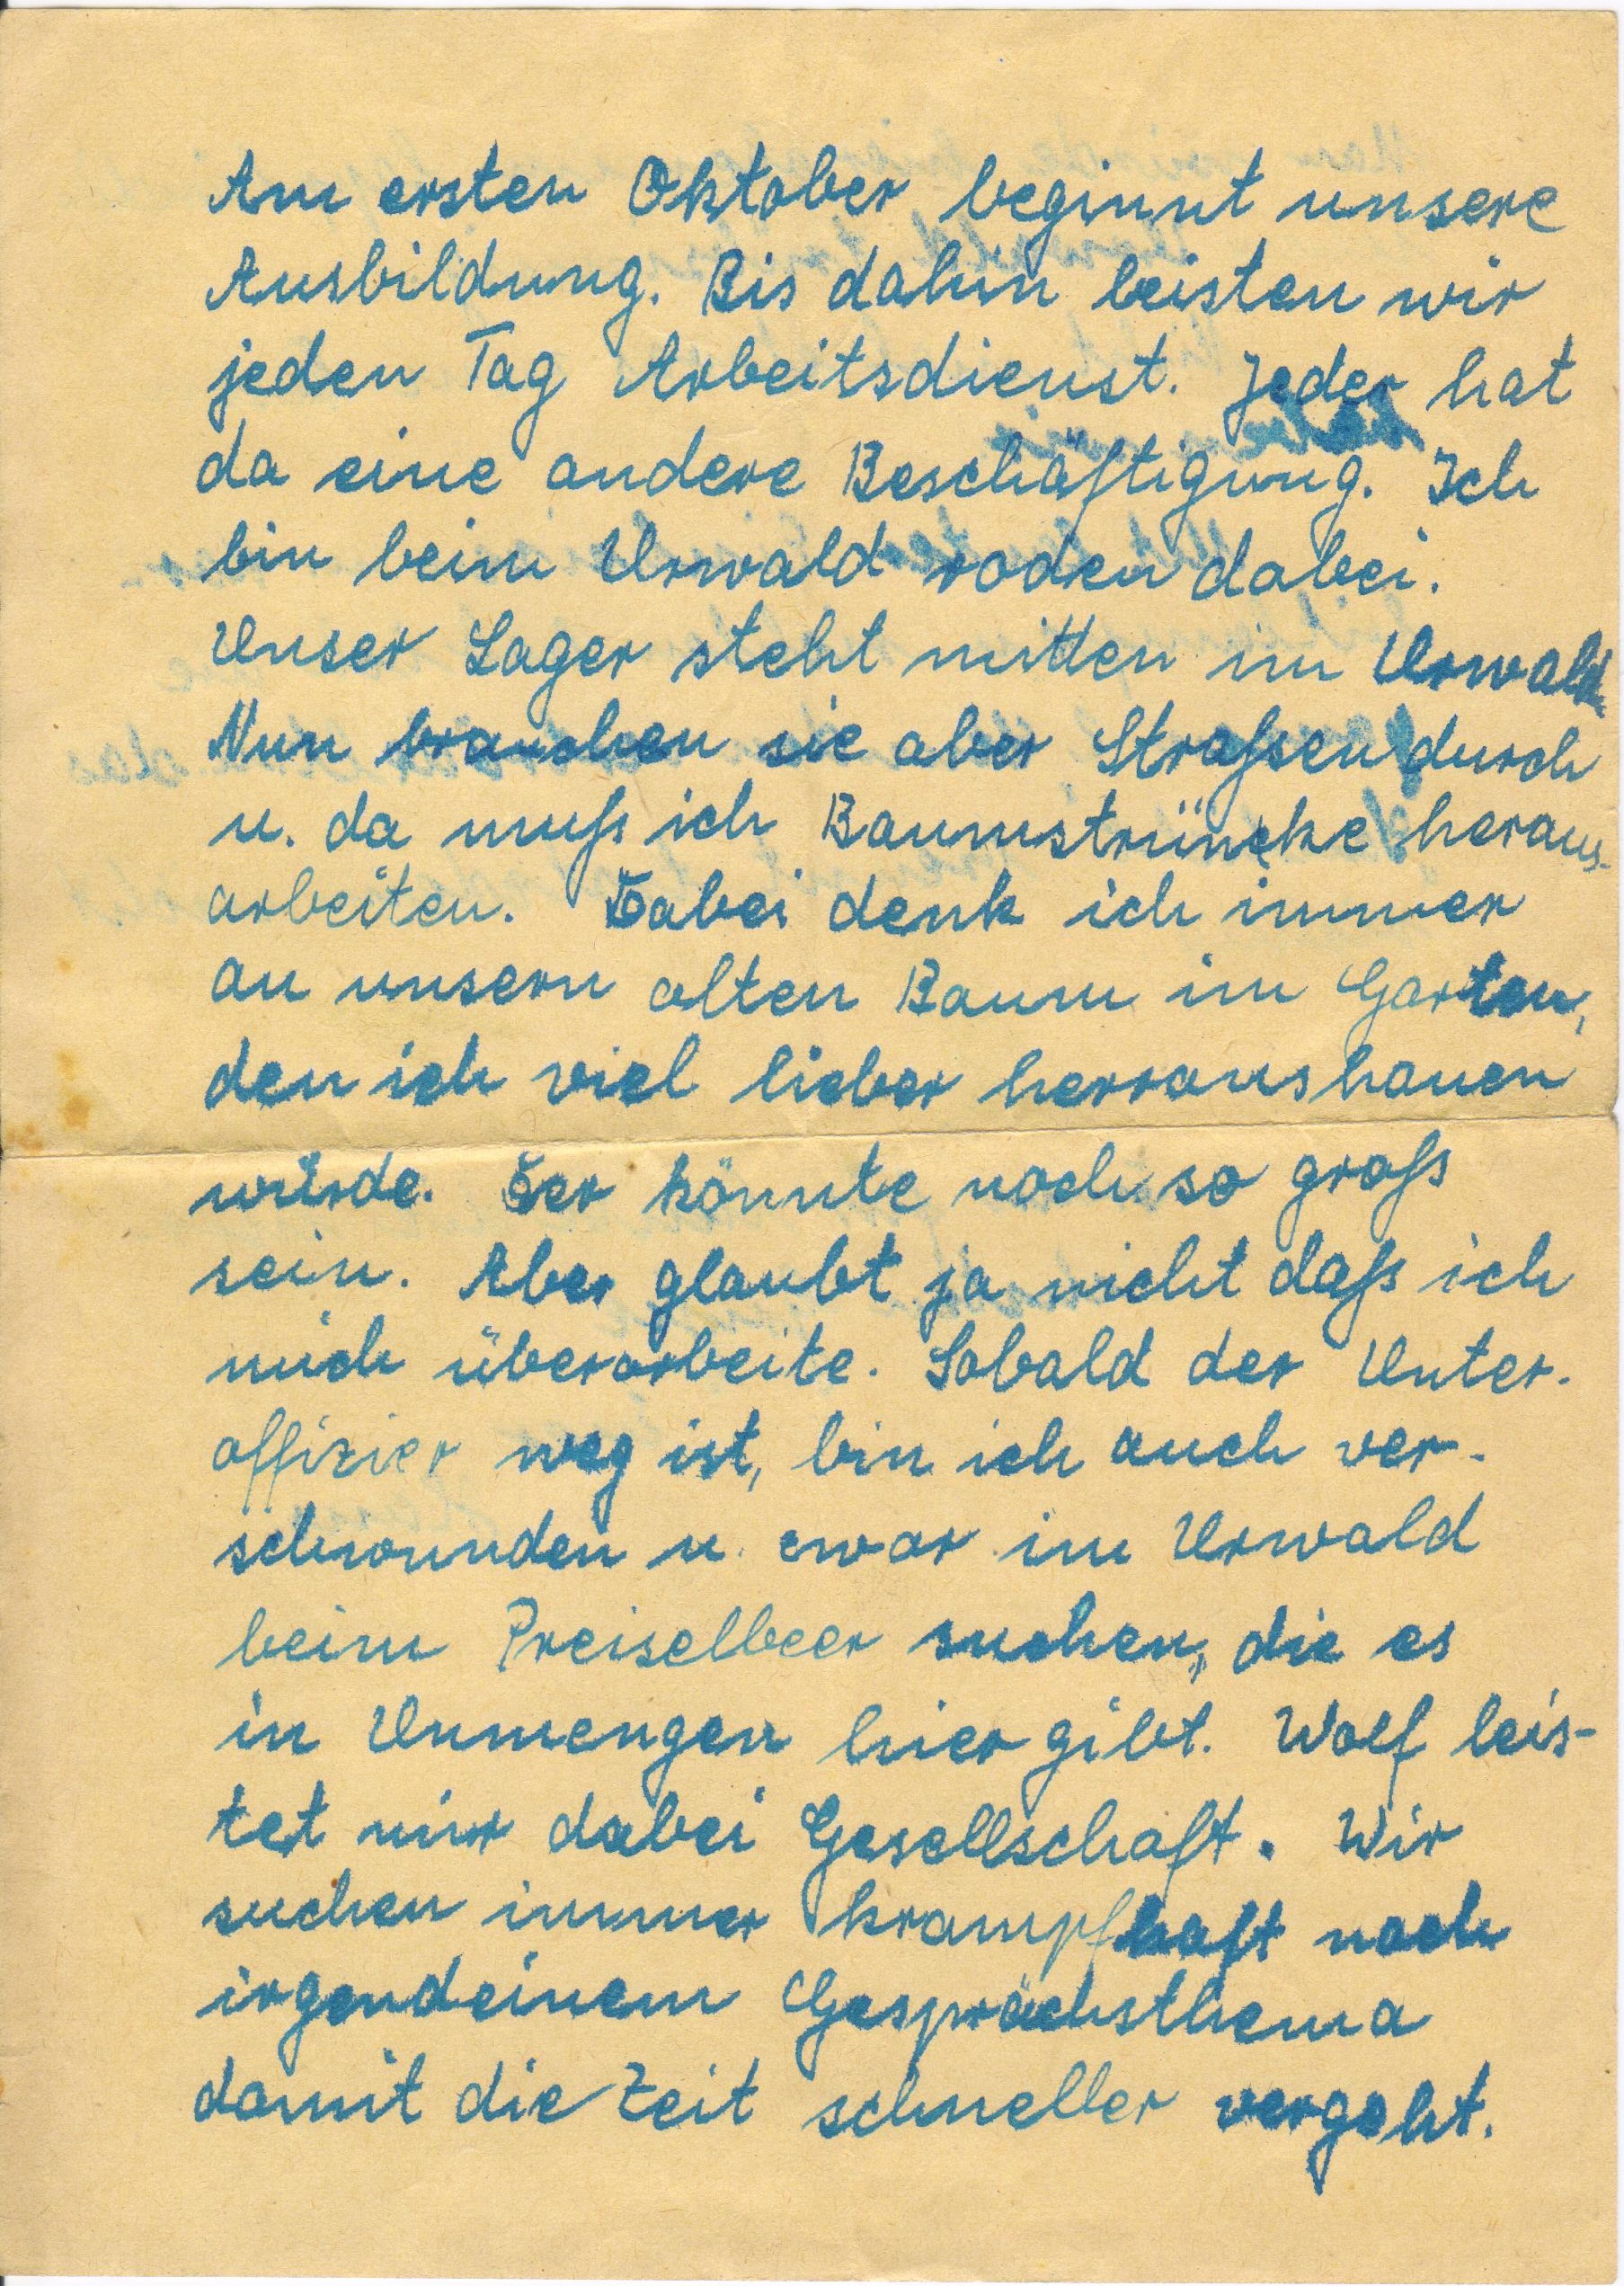 Am ersten Oktober beginnt unsere
Ausbildung. Bis dahin leisten wir
jeden Tag Arbeitsdienst. Jeder hat
da eine andere Beschäftigung. Ich
bin beim Urwald roden dabei.
Unser Lager steht mitten im Urwald.
Nun brauchen sie aber Straßen durch
u. da muß ich Baumstrüncke heraus-
arbeiten. Dabei denk ich immer
an unsern alten Baum im Garten,
den ich viel lieber herraushauen
würde. Der könnte noch so groß
sein. Aber glaubt ja nicht daß ich
mich überarbeite. Sobald der Unter-
offizier weg ist, bin ich auch ver-
schwunden u. zwar im Urwald
beim Preiselbeer suchen, die es
in Unmengen hier gibt. Wolf leis-
tet mir dabei Gesellschaft. Wir
suchen immer krampfhaft nach
irgendeinem Gesprächsthema
damit die Zeit schneller vergeht.